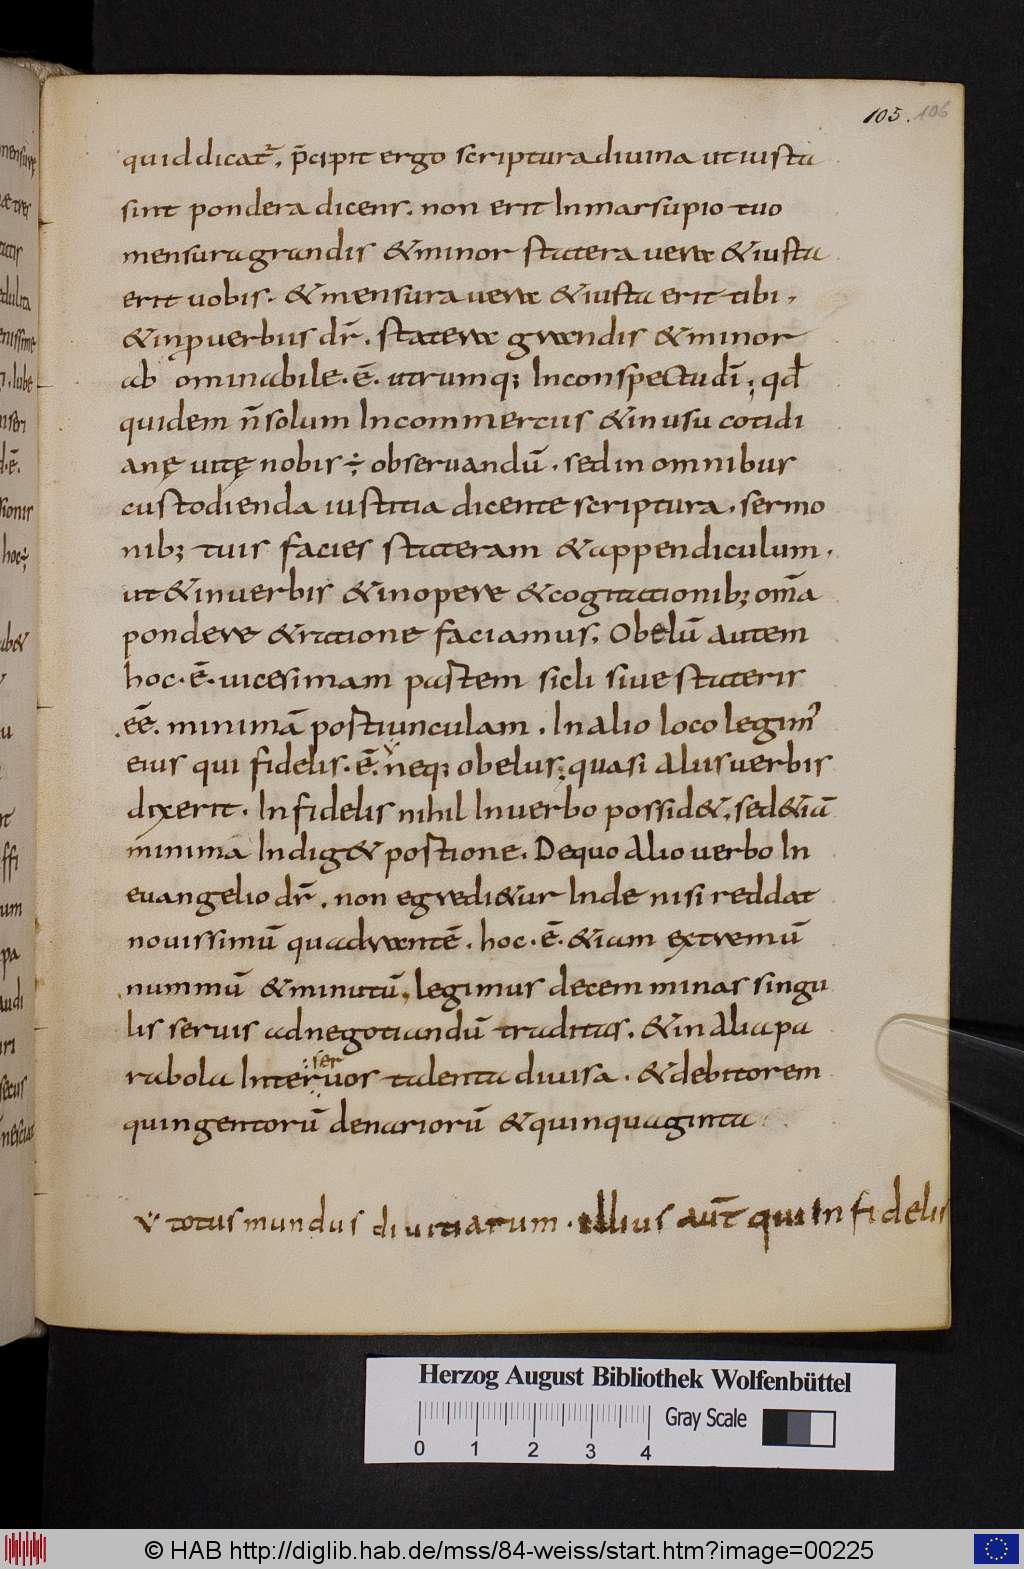 105. 106
quid dicat̄. p̄cipit ergo scriptura diuina ut iusta
sint pondera dicens. non erit In marsupio tuo
mensura grandis &minor statera uera &iusta
erit uobis. &mensura uera &iusta erit tibi.
&inꝓuerbiis dr̄. statera grandis &minor
ab ominabile. ē. utrumq; Inconspectu dī; qd̄
quidem n̄ solum Incommerciis &in usu cotidi
anę uitę nobis ÷ obseruandū. sed in omnibus
custodienda iustitia dicente scriptura. sermo
nib; tuis facies stateram &appendiculum.
ut &inuerbis &inopere &cogitationib; om̄a
pondere &ratione faciamus. Obelū autem
hoc. ē. uicesimam partem sicli siue stateris
eē. minimā portiunculam. In alio loco legim᾽
eius qui fidelis. ē. neq; obelus; quasi aliis uerbis
dixerit. Infidelis nihil Inuerbo possid&. sed &iā
minima Indig& portione. De quo alio uerbo In
euangelio dr̄. non egredi&ur Inde nisi reddat
nouissimū quadrantē. hoc. ē. &iam extremū
nummū &minutū. legimus decem minas singu
lis seruis adnegotiandū traditas. &in alia pa
ser
rabola Interuos talenta diuisa. &debitorem
quingentorū denariorū &quinquaginta
v totus mundus diuitiarum. illius aut̄ qui Infidelis
Herzog August Bibliothek Wolfenbüttel
Gray Scale
0 1 2 3 4
© HAB http://diglib.hab.de/mss/84-weiss/start.htm?image=00225